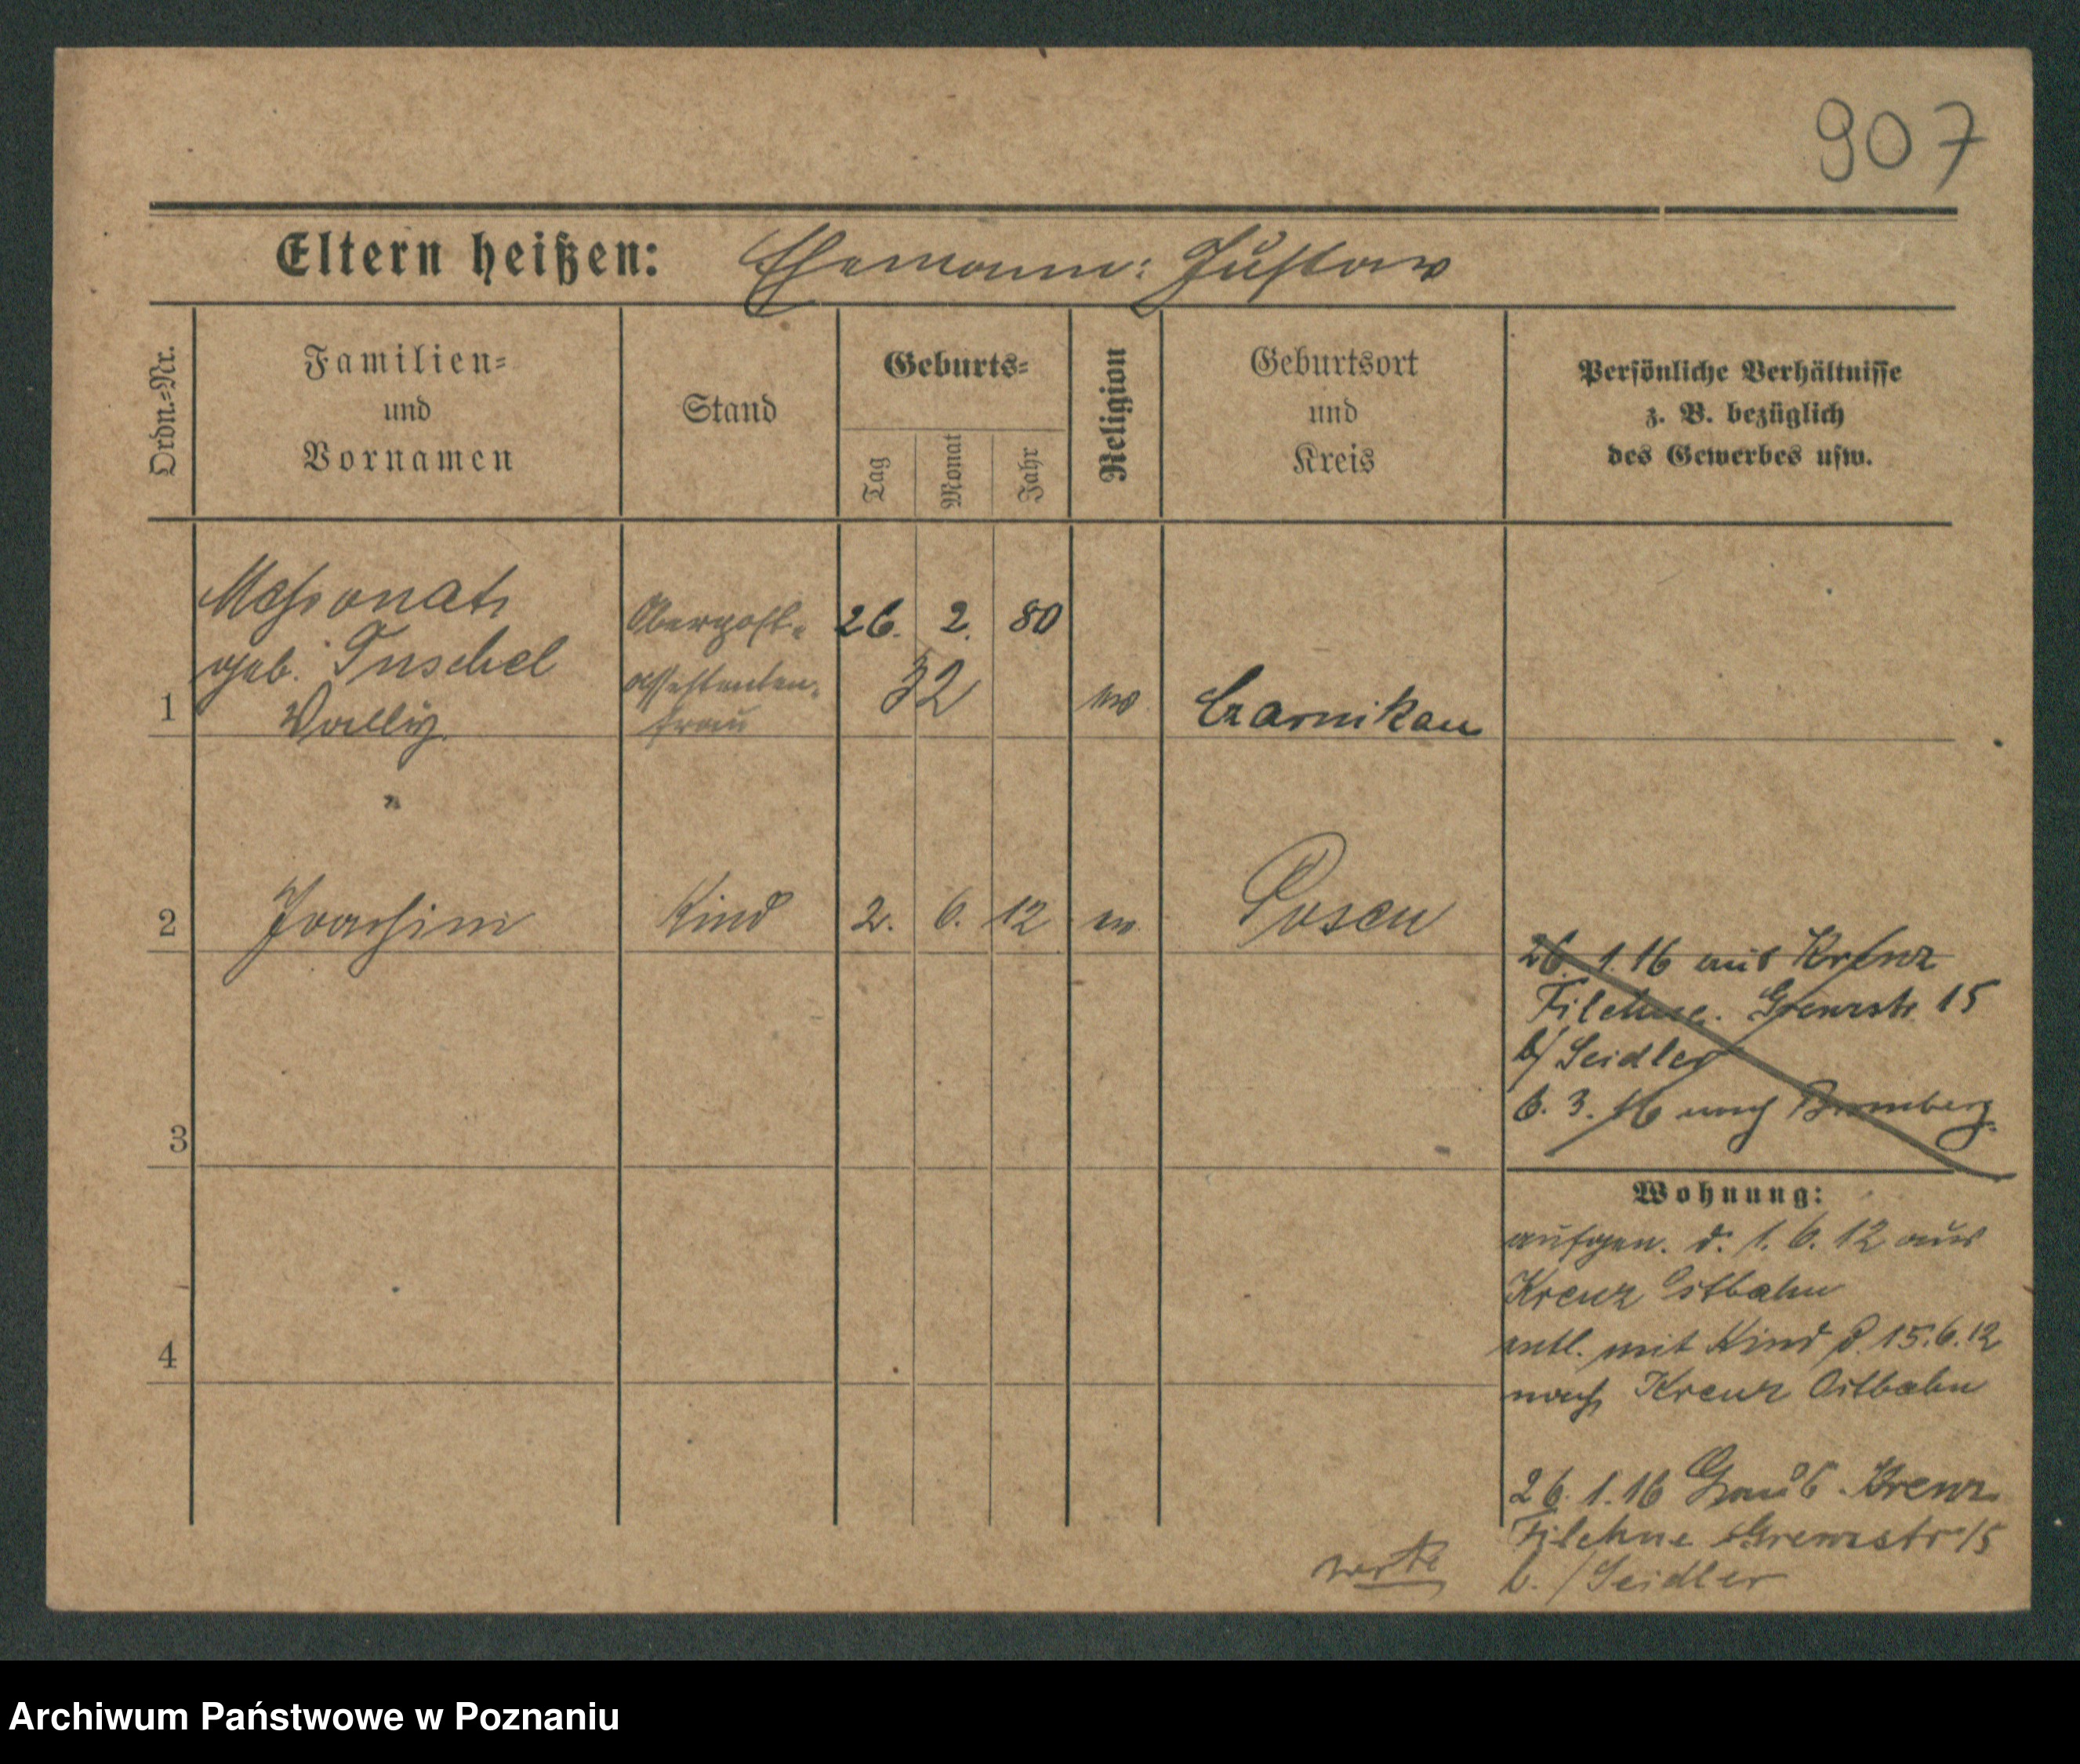 907
Eltern heißen: Ehemann: Gustav
Ordn.-Nr.
Familien-
und
Vornamen
Stand
Geburts-
Tag
Monat
Jahr
Religion
Geburtsort
und
Kreis
Persönliche Verhältnisse
z. B. bezüglich
des Gewerbes usw.
1
geb. Tuschel
Wally
Oberpost-
assistenten-
frau
26. 2. 80
32
ev
Czarnikau
2 Joachim Kind 2. 6. 12 ev Posen
3
4
26. 1. 16 aus Kreuz
Filehne. Grenzstr. 15
b/ Seidler
6. 3. 16 nach Bromberg.
Wohnung:
aufgen. d. 1. 6. 12 aus
Kreuz Ostbahn
entl. mit Kind d. 15. 6. 12
nach Kreuz Ostbahn
26. 1. 16 Kreuz
Filehne Grenzstr 15
b. / Seidler
Archiwum Państwowe w Poznaniu